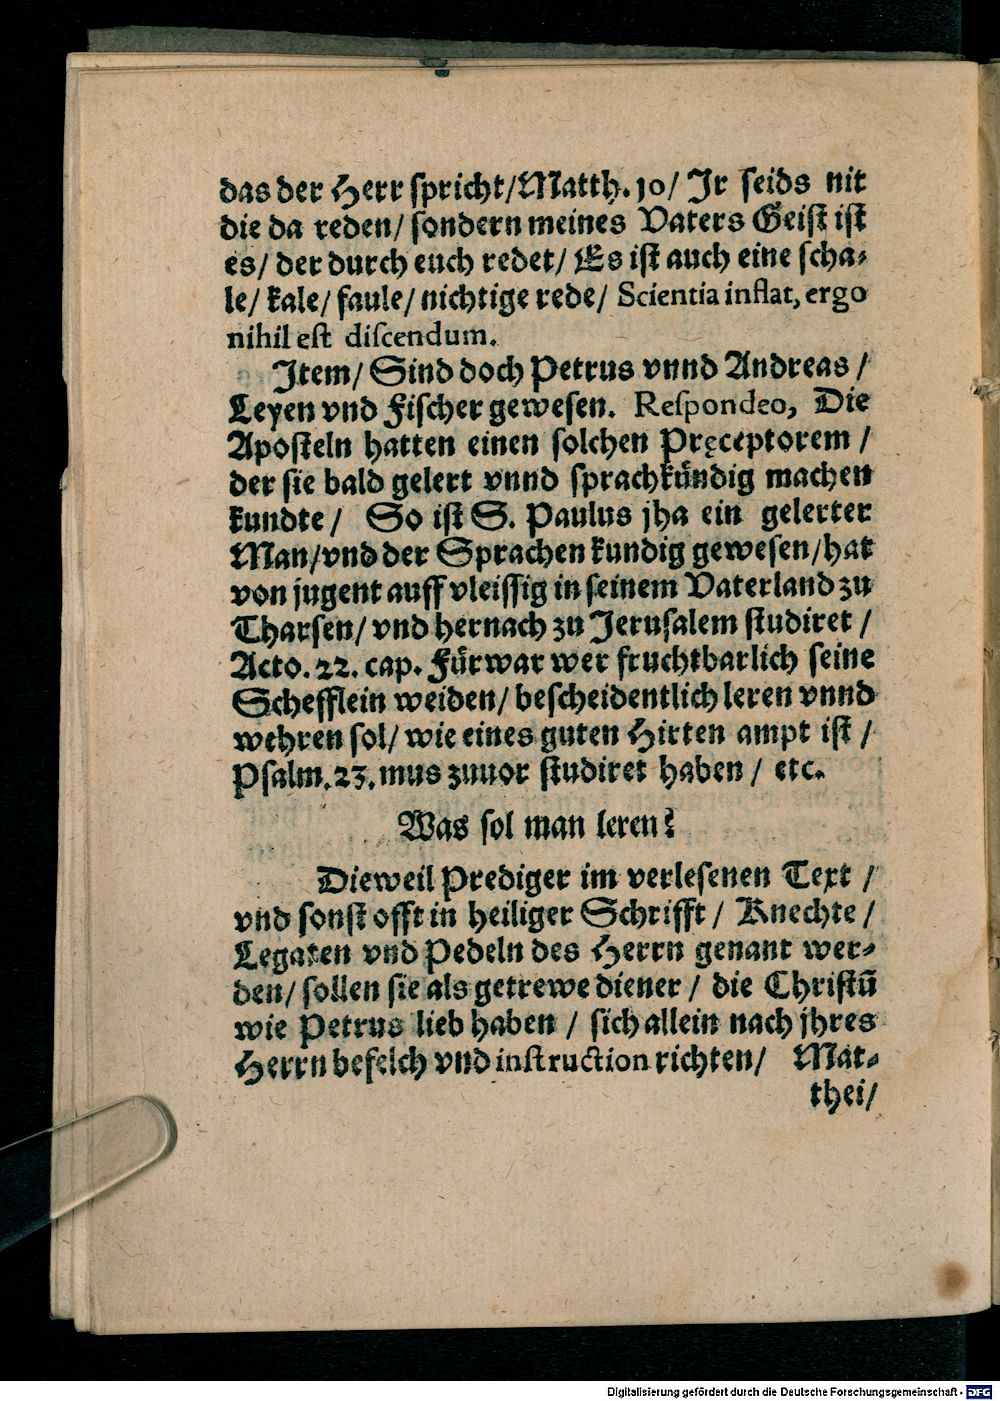 das der Herr spricht/Matth. 10/ Jr seids nit
die da reden/ sondern meines Vaters Geist ist
es/ der durch euch redet/ Es ist auch eine scha-
le/ kale/ faule/ nichtige rede/ Scientia inflat, ergo
nihil est discendum.
Item/ Sind doch Petrus vnnd Andreas /
Leyen vnd Fischer gewesen. Respondeo, Die
Aposteln hatten einen solchen Pręceptorem /
der sie bald gelert vnnd sprachkůndig machen
kundte / So ist S. Paulus jha ein gelerter
Man/vnd der Sprachen kundig gewesen/hat
von jugent auff vleissig in seinem Vaterland zu
Tharsen/ vnd hernach zu Jerusalem studiret /
Acto. 22. cap. Fůrwar wer fruchtbarlich seine
Schefflein weiden/ bescheidentlich leren vnnd
wehren sol/ wie eines guten Hirten ampt ist /
Psalm. 23. mus zuuor studiret haben / etc.
Was sol man leren?
Dieweil Prediger im verlesenen Text /
vnd sonst offt in heiliger Schrifft / Knechte /
Legaten vnd Pedeln des Herrn genant wer-
den/ sollen sie als getrewe diener / die Christū
wie Petrus lieb haben / sich allein nach jhres
Herrn befelch vnd instruction richten/ Mat-
thei/
Digitalisierung gefördert durch die Deutsche Forschungsgemeinschaft - DFG